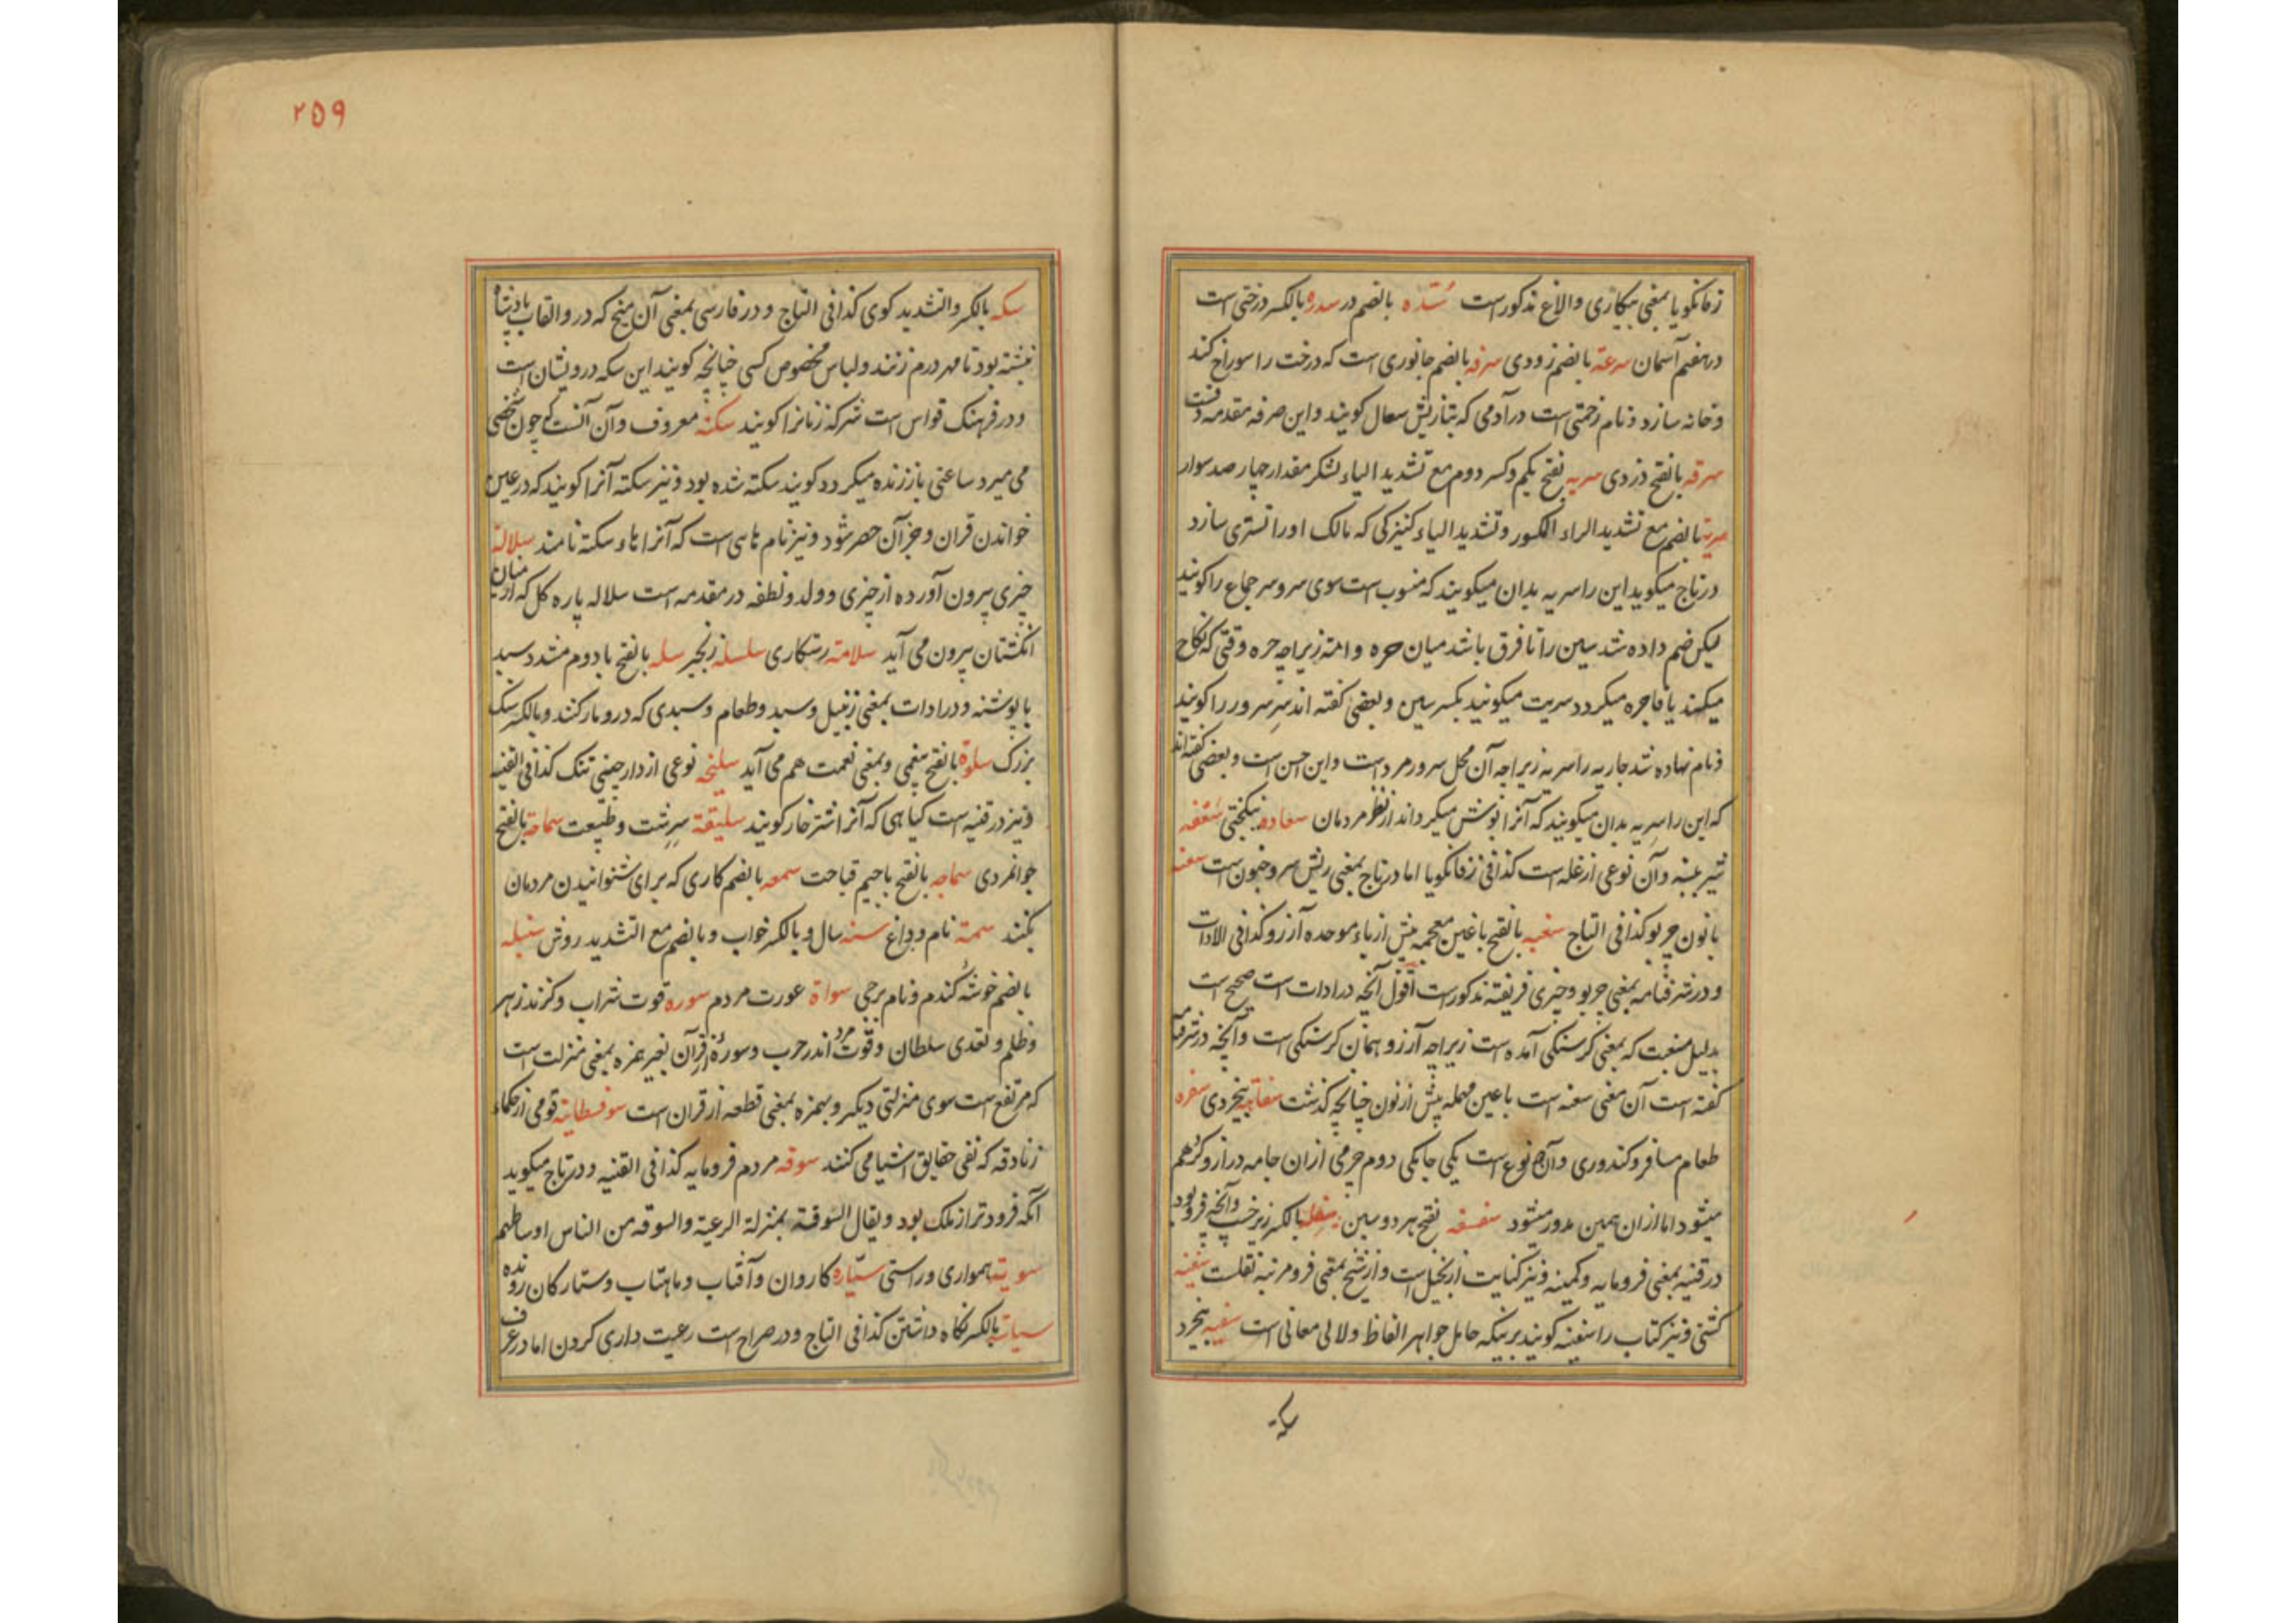 زفانکویا بمعنی بیکاری والاغ مذکورست سُدّه بالضم در سدره بالکسر درختی است
در هفتم آسمان سرعة بالضم زودی سرفه بالضم جانوری است که درخت را سوراخ کند
و خانه سازد و نام زحمتی است در آدمی که بتازیش سعال کویند و این صرفه مقدمه
سرقه بالفتح دزدی سریه بفتح یکم و کسر دوم مع تشدید الیاء لشکر مقدار چهار صد سوار
سریة بالضم مع تشدید الراء المکسور و تشدید الیاء کنیزکی که مالک او را تسری سازد
در تاج میکوید این را سریه بدان میکویند که منسوب است سوی سر و سر جماع را کویند
لیکن ضم داده شد سین را تا فرق باشد میان حره و امة زیراچه حره وقتی که نکاح
میکند یا فاجره میکردد سریت میکویند بکسر سین و بعضی کفته اند سر سرور را کویند
و نام نهاده شد جاریه را سریه زیراچه آن محل سرور مرد است و این احسن است و بعضی کفته اند
که این را سریه بدان میکویند که آنرا پوشش میکرداند از نظر مردمان سعاده نیکبختی سعفه
وآن نوعی از غله است کذا فی زفانکویا اما در تاج بمعنی ریش سر و خبون است سعنه
با نون چربو کذا فی التاج سغبه بالفتح با غین معجمه پیش از باء موحده آرزو کذا فی الادات
و در شرفنامه بمعنی چربو و چیزی فریفته مذکورست اقول آنچه در ادات است صحیح است
بدلیل سغبت که بمعنی کرسنکی آمده است زیراچه آرزو همان کرسنکی است و آنچه در شرفنا
کفته است آن معنی سعنه است با عین مهمله پیش از نون چنانچه کذشت سفاهة بیخردی سفره
طعام مسافر و کندوری و آن نوع است یکی جامکی دوم چرمی ازان جامه دراز و کرد هم
میشود اما ازان همین مدور میشود سفسفه بفتح هر دو سین سفله بالکسر زیر و آنچه فرو بود
در قنیه بمعنی فرومایه و کمینه و نیز کنایت از بخیل است و از شیخ بمعنی فرومرتبه نقلست سفینه
کشتی و نیز کتاب را سفینه کویند بر نیکه حامل جواهر الفاظ و لالی معانی است سفیه بیخرد
سکه
۲۵۹
سکه بالکسر والتشدید کوی کذا فی التاج و در فارسی بمعنی آن میخ که در و القاب پادشاه
نبشته بود تا مهر درم زنند و لباس مخصوص کسی چنانچه کویند این سکه درویشان است
و در فرهنک قواس است شرکه زنانرا کویند سکته معروف و آن آنست که چون شخصی
می میرد ساعتی باز زنده میکردد کویند سکته شده بود و نیز سکته آنرا کویند که در عین
خواندن قران و جز آن حصر شود و نیز نام هاسی است که آنرا هاء سکته نامند سلالة
چیزی بیرون آورده از چیزی و ولد و نطفه در مقدمه است سلاله پاره کل که از میان
انکشتان بیرون می آید سلامة رستکاری سلسله زنجیر سله بالفتح با دوم مشدد سبد
با پوشنه و در ادات بمعنی زنبیل و سبد و طعام و سبدی که در و مار کنند و بالکسر سنک
بزرک سلوة بالفتح بیغمی و بمعنی نعمت هم می آید سلیخه نوعی از دارچینی تنک کذا فی القنیه
و نیز در قنیه است کیاهی که آنرا شترخار کویند سلیقة سرشت و طبیعت سماحة بالفتح
جوانمردی سماجه بالفتح با جیم قباحت سمعه بالضم کاری که برای شنوانیدن مردمان
بکنند سمة نام و داغ سنه سال و بالکسر خواب و بالضم مع التشدید روش سنبله
بالضم خوشه کندم و نام برجی سواة عورت مردم سوره قوت شراب و کزند زهر
و ظلم و تعدی سلطان و قوت مرد اندر حرب و سورة از قرآن بغیر همزه بمعنی منزلت است
که مرتفع است سوی منزلتی دیکر و بهمزه بمعنی قطعه از قران است سوفسطایة قومی از حکماء
زنادقه که نفی حقایق اشیا می کنند سوقه مردم فرومایه کذا فی القنیه و در تاج میکوید
آنکه فرودتر از ملک بود و یقال السوقة بمنزلة الرعیة والسوقه من الناس اوساطهم
سویة همواری و راستی سیّاره کاروان و آفتاب و ماهتاب و ستارکان رونده
سیاسة بالکسر نکاه داشتن کذا فی التاج و در صراح است رعیت داری کردن اما در عرف